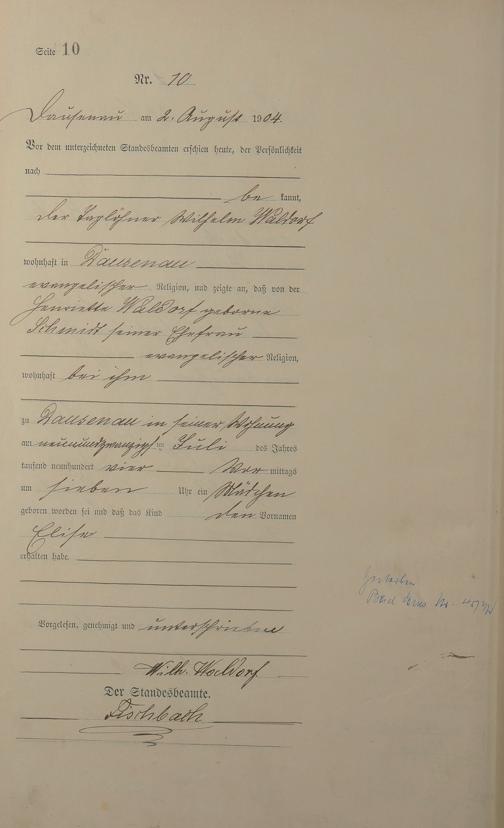 Seite 10
Nr. 10
Dausenau am 2. August 1904.
Vor dem unterzeichneten Standesbeamten erschien heute, der Persönlichkeit
nach
be kannt,
der Taglöhner Wilhelm Waldorf
wohnhaft in Dausenau
evangelischer Religion, und zeigte an, daß von der
Henriette Waldorf geborne
Schmidt seiner Ehefrau
evangelischer Religion,
wohnhaft bei ihm
zu Dausenau in seiner Wohnung
am neunundzwanzigsten Juli des Jahres
tausend neunhundert vier Vor mittags
um sieben Uhr ein Mädchen
geboren worden sei und daß das Kind den Vornamen
Elise
erhalten habe.
Vorgelesen, genehmigt und unterschrieben
Wilh. Waldorf
Der Standesbeamte.
Fischbach
Gestorben
Bad Ems Nr.